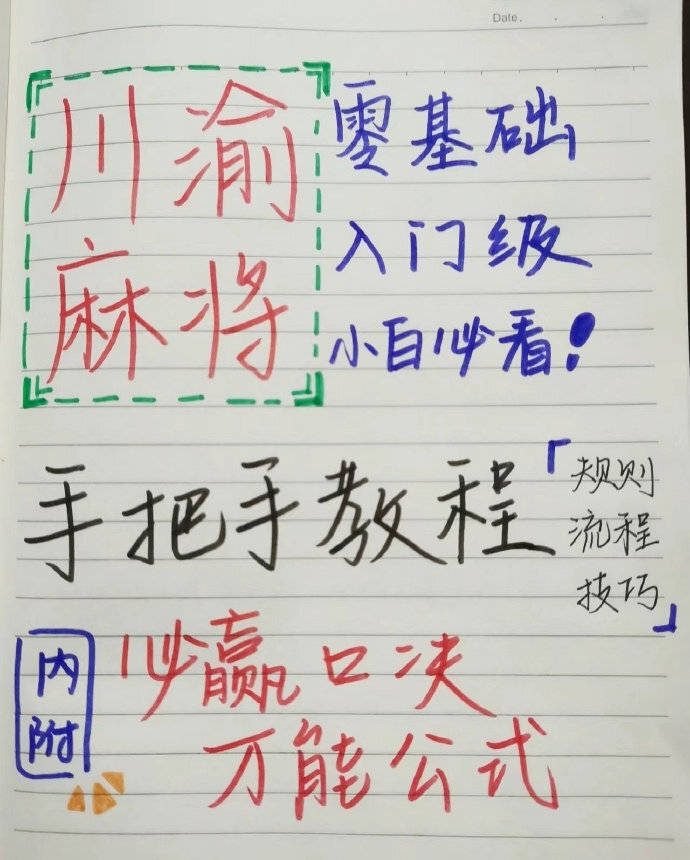 Date.
川渝
麻将
零基础
入门级
小白必看!
手把手教程
「规则
流程
技巧」
内
附
必赢口决
万能公式